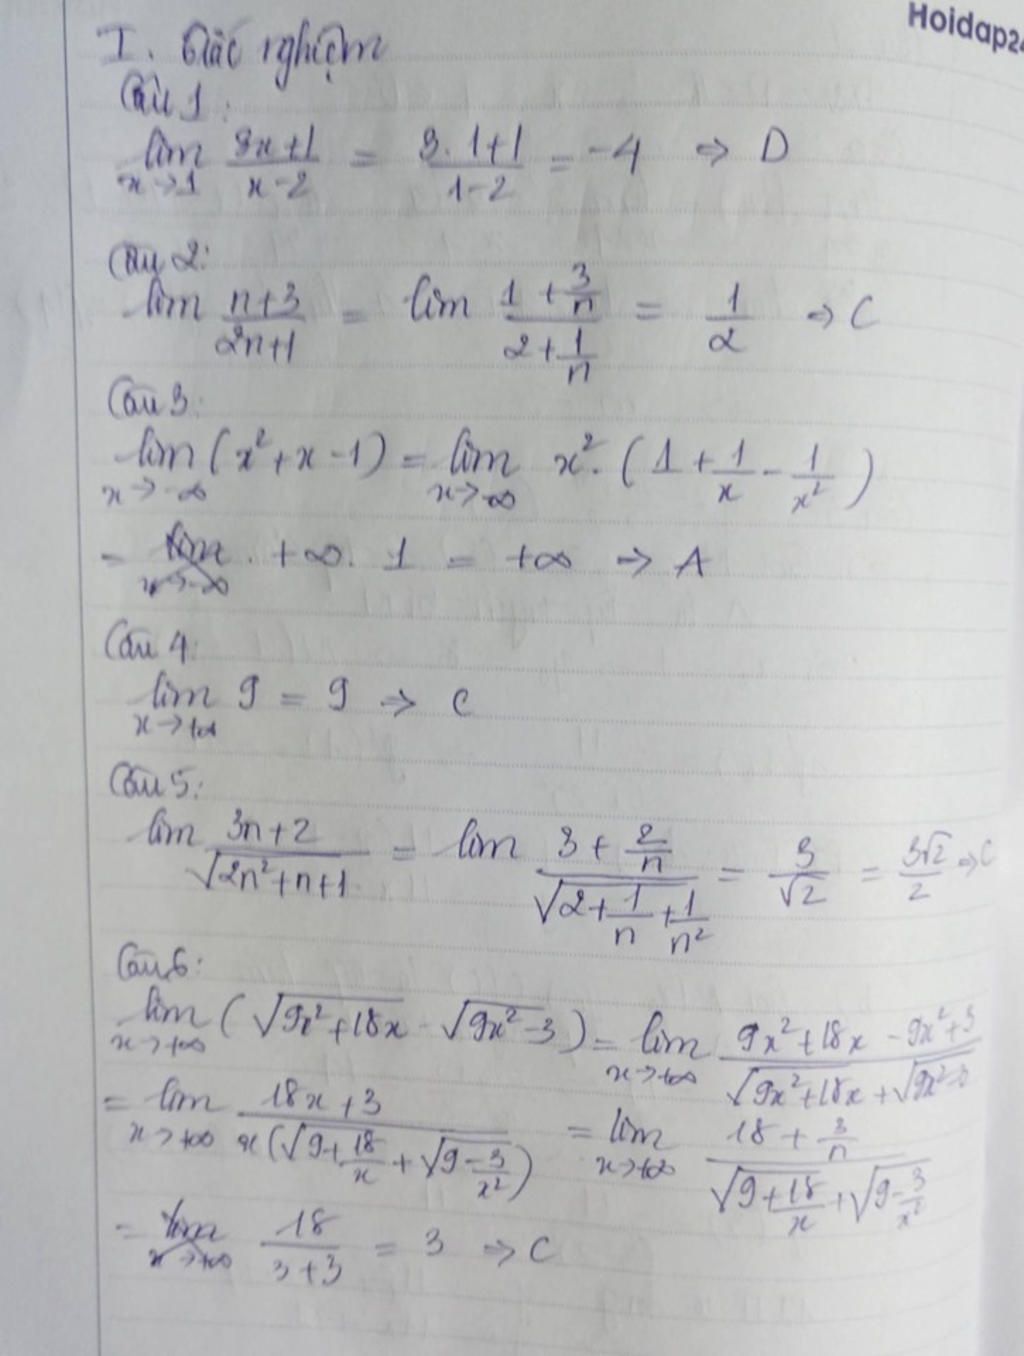 Hoidap24
I. Trắc nghiệm
Câu 1:
lim x→1 (3x+1)/(x-2) = (3.1+1)/(1-2) = -4 ⇒ D
Câu 2:
lim (n+3)/(2n+1) = lim (1 + 3/n)/(2 + 1/n) = 1/2 ⇒ C
Câu 3:
lim x→-∞ (x² + x - 1) = lim x→-∞ x². (1 + 1/x - 1/x²)
= +∞. 1 = +∞ ⇒ A
Câu 4:
lim x→+∞ 9 = 9 ⇒ C
Câu 5:
lim (3n+2)/√(2n²+n+1) = lim (3 + 2/n)/√(2 + 1/n + 1/n²) = 3/√2 = 3√2/2 ⇒ C
Câu 6:
lim x→+∞ (√(9x²+18x) - √(9x²-3)) = lim x→+∞ (9x²+18x - 9x²+3)/(√(9x²+18x) + √(9x²-3))
= lim x→+∞ (18x+3)/(x(√(9+18/x) + √(9-3/x²))) = lim x→+∞ (18 + 3/n)/(√(9+18/x) + √(9-3/x²))
= 18/(3+3) = 3 ⇒ C